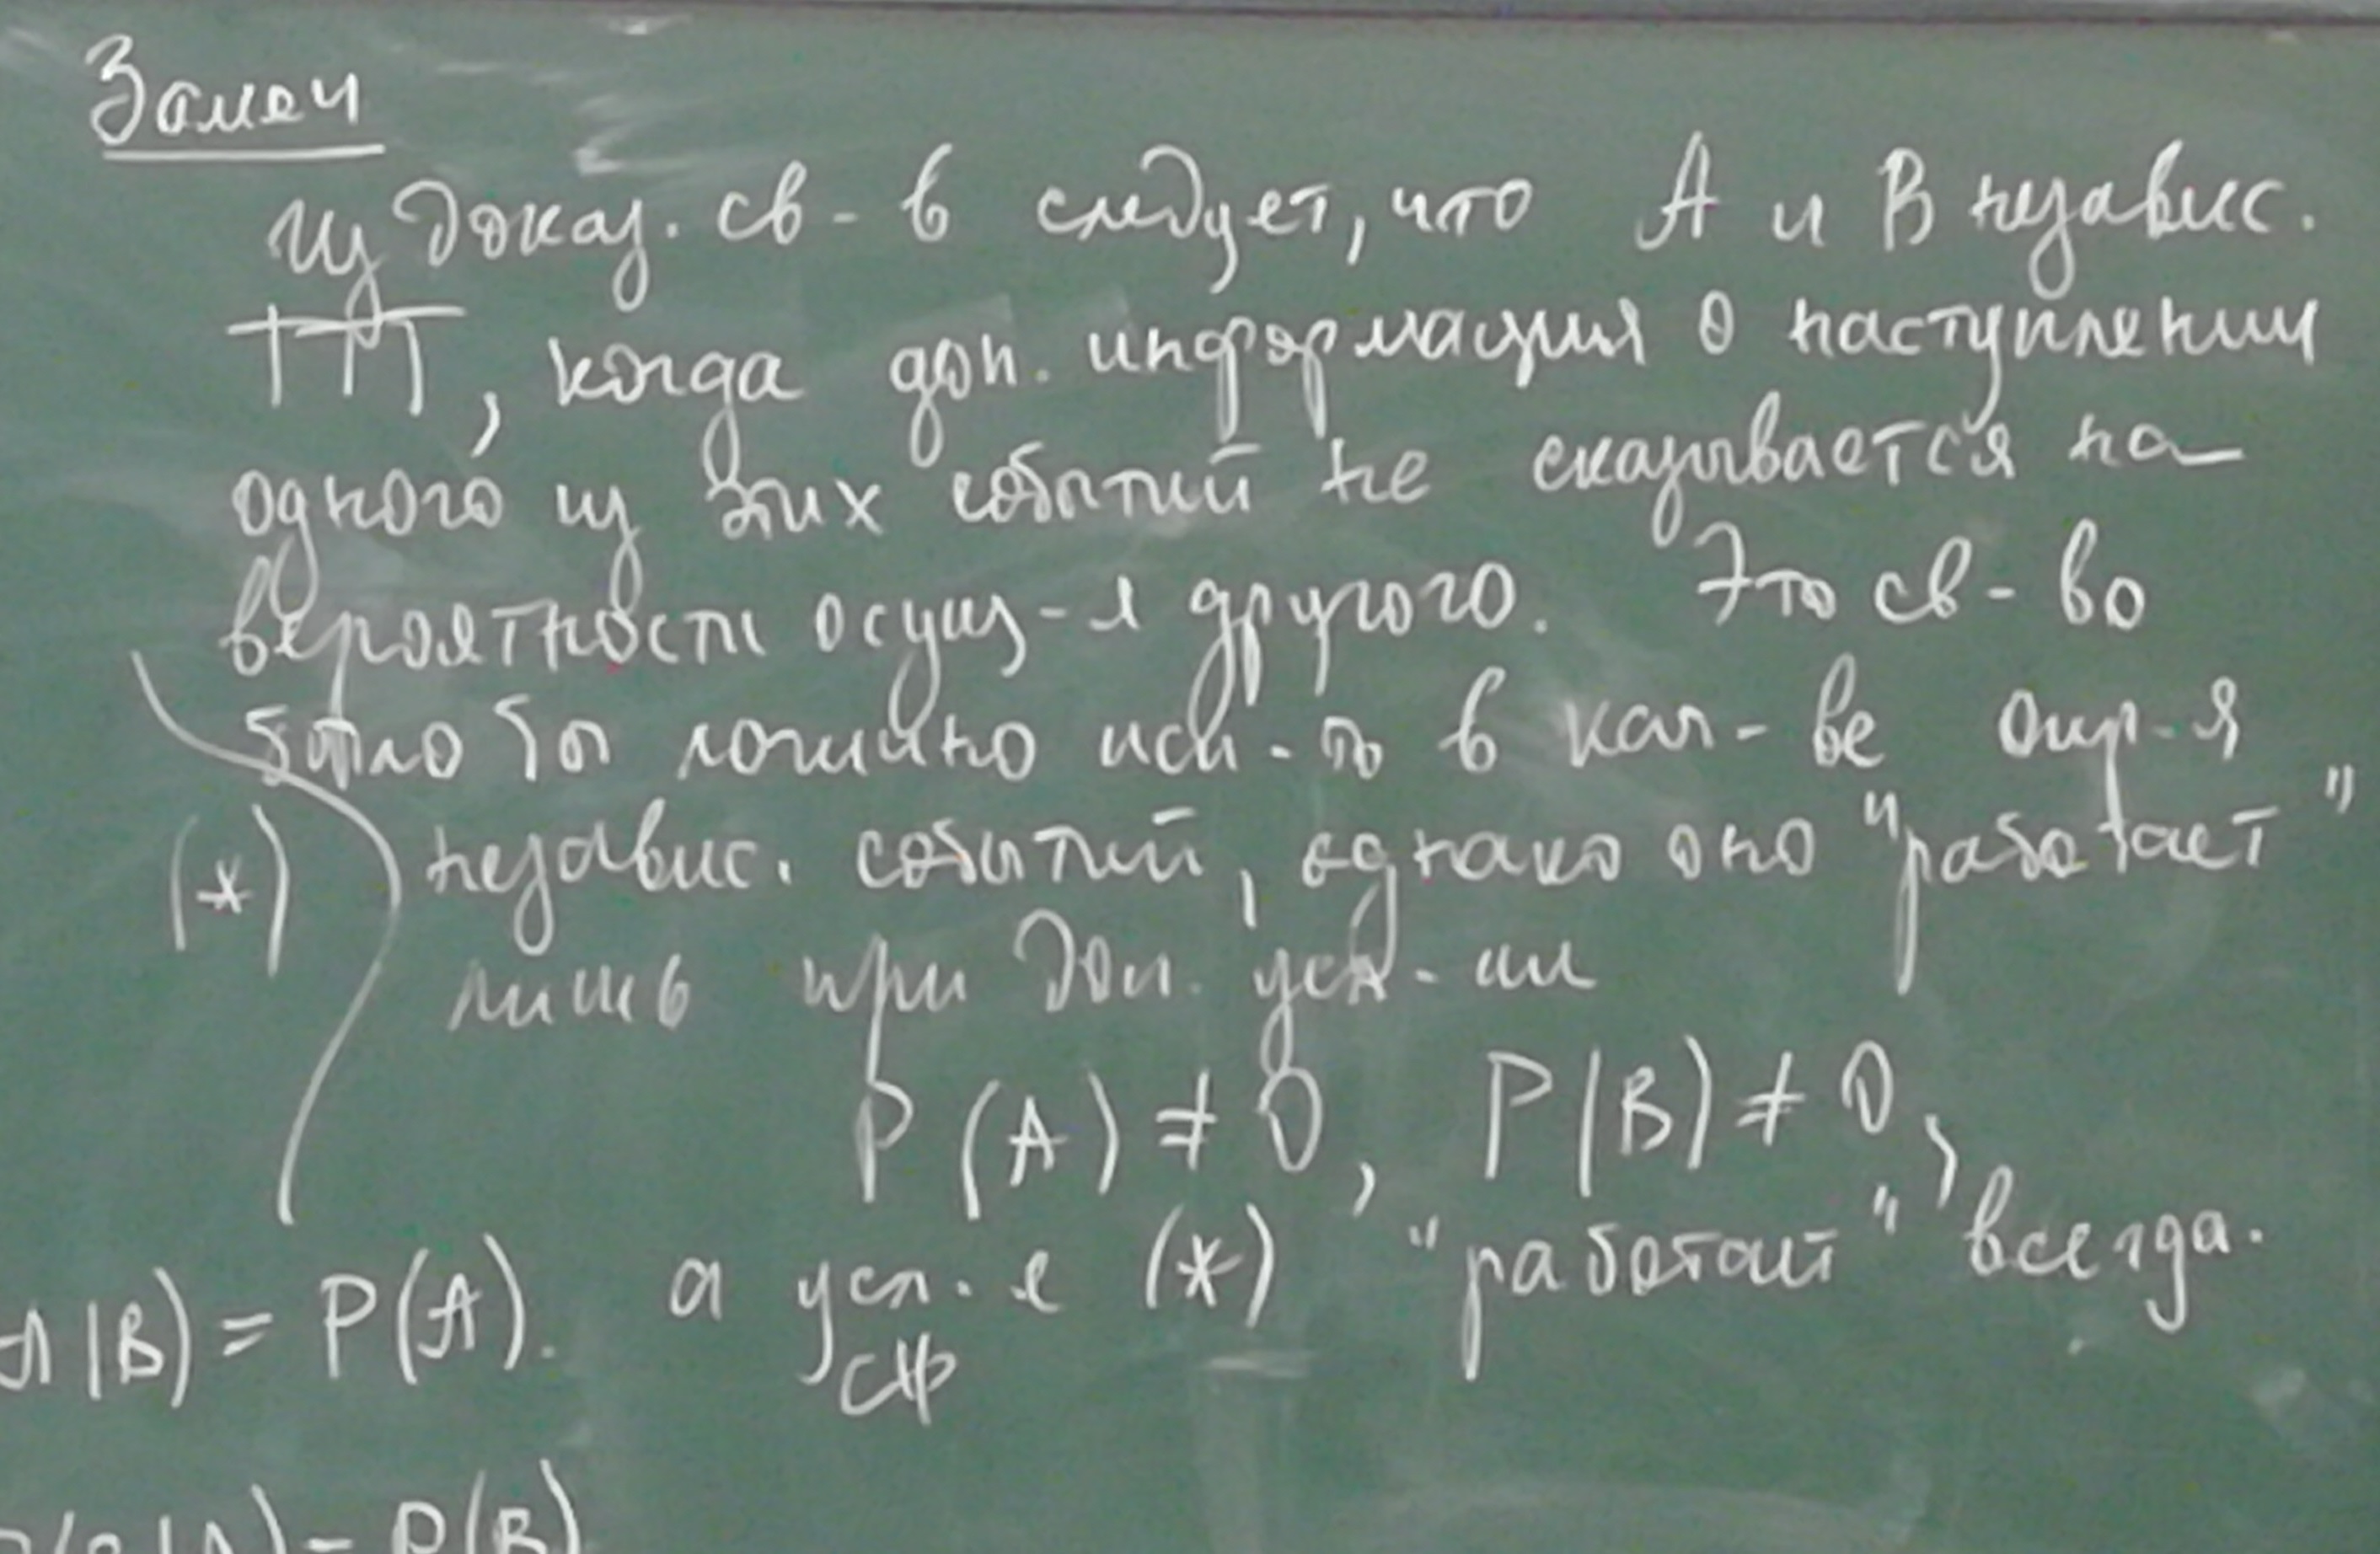 Замеч
из доказ. св-в следует, что A и B независ.
ТТТ, когда доп. информация о наступлении
одного из этих событий не сказывается на
вероятности осущ-я другого. Это св-во
было бы логично исп-ть в кач-ве опр-я
(*) независ. событий, однако оно "работает"
лишь при доп. усл-ии
P(A) ≠ 0, P(B) ≠ 0,
A|B) = P(A). а усл-е (*) "работает" всегда.
P(B|A) = P(B)